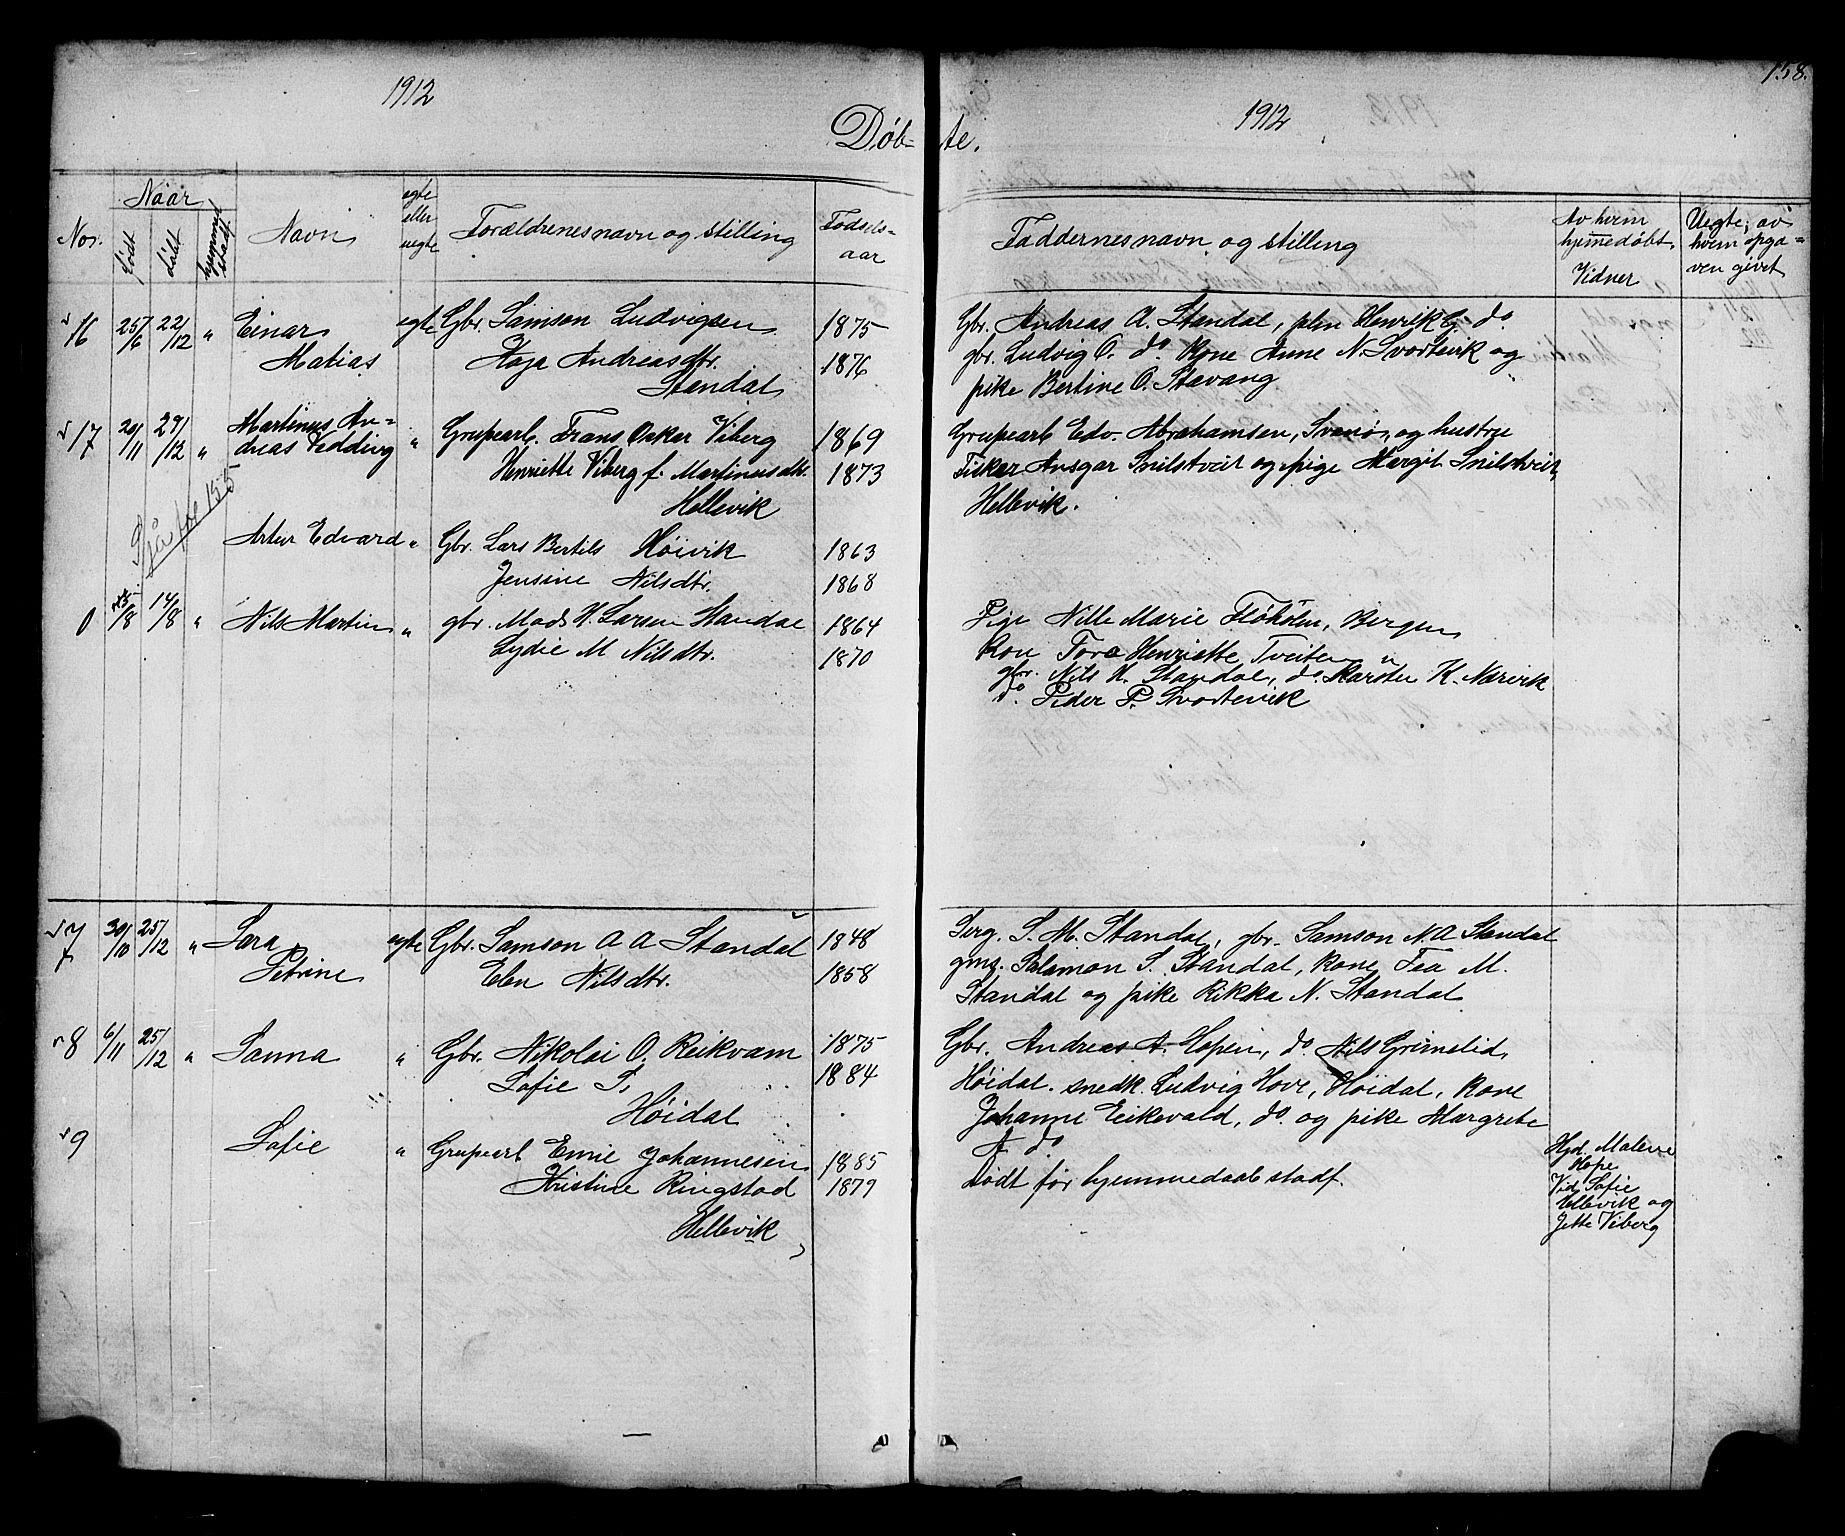 1912
1912
158.
Døb-
te.
Naar
Nor.
født
døbt
Navn
egte
eller
uegte
Forældrenes navn og stilling
Fødsels=
aar
Faddernes navn og stilling
Av hvem
hjemmedøbt.
Vidner
Uegte; av
hvem opga=
ven givet
16 25/6 22/12 " Einar egte Gbr. Samson Ludvigsen 1875
Matias Kaja Andreasdtr. 1876
Standal
Gbr. Andreas A. Standal, plm Henrik G. do.
gbr. Ludvig O. do. Kone Anne N. Svortevik og
pike Bertine O. Stavang
17 20/11 29/12 " Martinus An=
dreas Vedding " Grupearb. Frans Oskar Viberg 1869
Henriette Viberg f. Martinusdtr. 1873
Hellevik
Grupearb Edv. Abrahamsen, Svanø, og hustru
Fisker Ansgar Snilstveit og pige Margit Snilstveit,
Hellevik.
155
Artur Edvard " Gbr. Lars Bertils Høivik 1863
Jensine Nilsdtr. 1868
0 /8 14/8 " Nils Martin " gbr. Mads H. Larsen Standal 1864
Lydie M Nilsdtr. 1870
Pige Nille Marie Fløholm, Bergen
Kone Tora Henriette Tveiten "
gbr. Nils H. Standal, do. Karsten K. Nærvik
do. Peder P. Svortevik
7 30/10 25/12 " Sara egte Gbr. Samson A A Standal 1848
Petrine Elen Nilsdtr. 1858
Serg. S. M. Standal, gbr. Samson N. A Standal
gms. Salamon S. Standal, kone Tea M.
Standal og pike Rikka N. Standal
8 6/11 25/12 " Sanna " Gbr. Nikolai O. Reikvam 1875
Sofie S. 1884
Høidal
Gbr. Andreas A. Hopen, do. Nils Grimelid,
Høidal. snedk. Ludvig Hove, Høidal, Kone
Johanne Eikevold, do. og pike Margrete
A do
9 Sofie " Grupearb Emil Johannesen 1885
Kristine Ringstad 1879
Hellevik
Dødt før hjemmedaab stadf.
Hjd. Malene
Hope
Vid. Sofie
Ellevik og
Jette Viberg